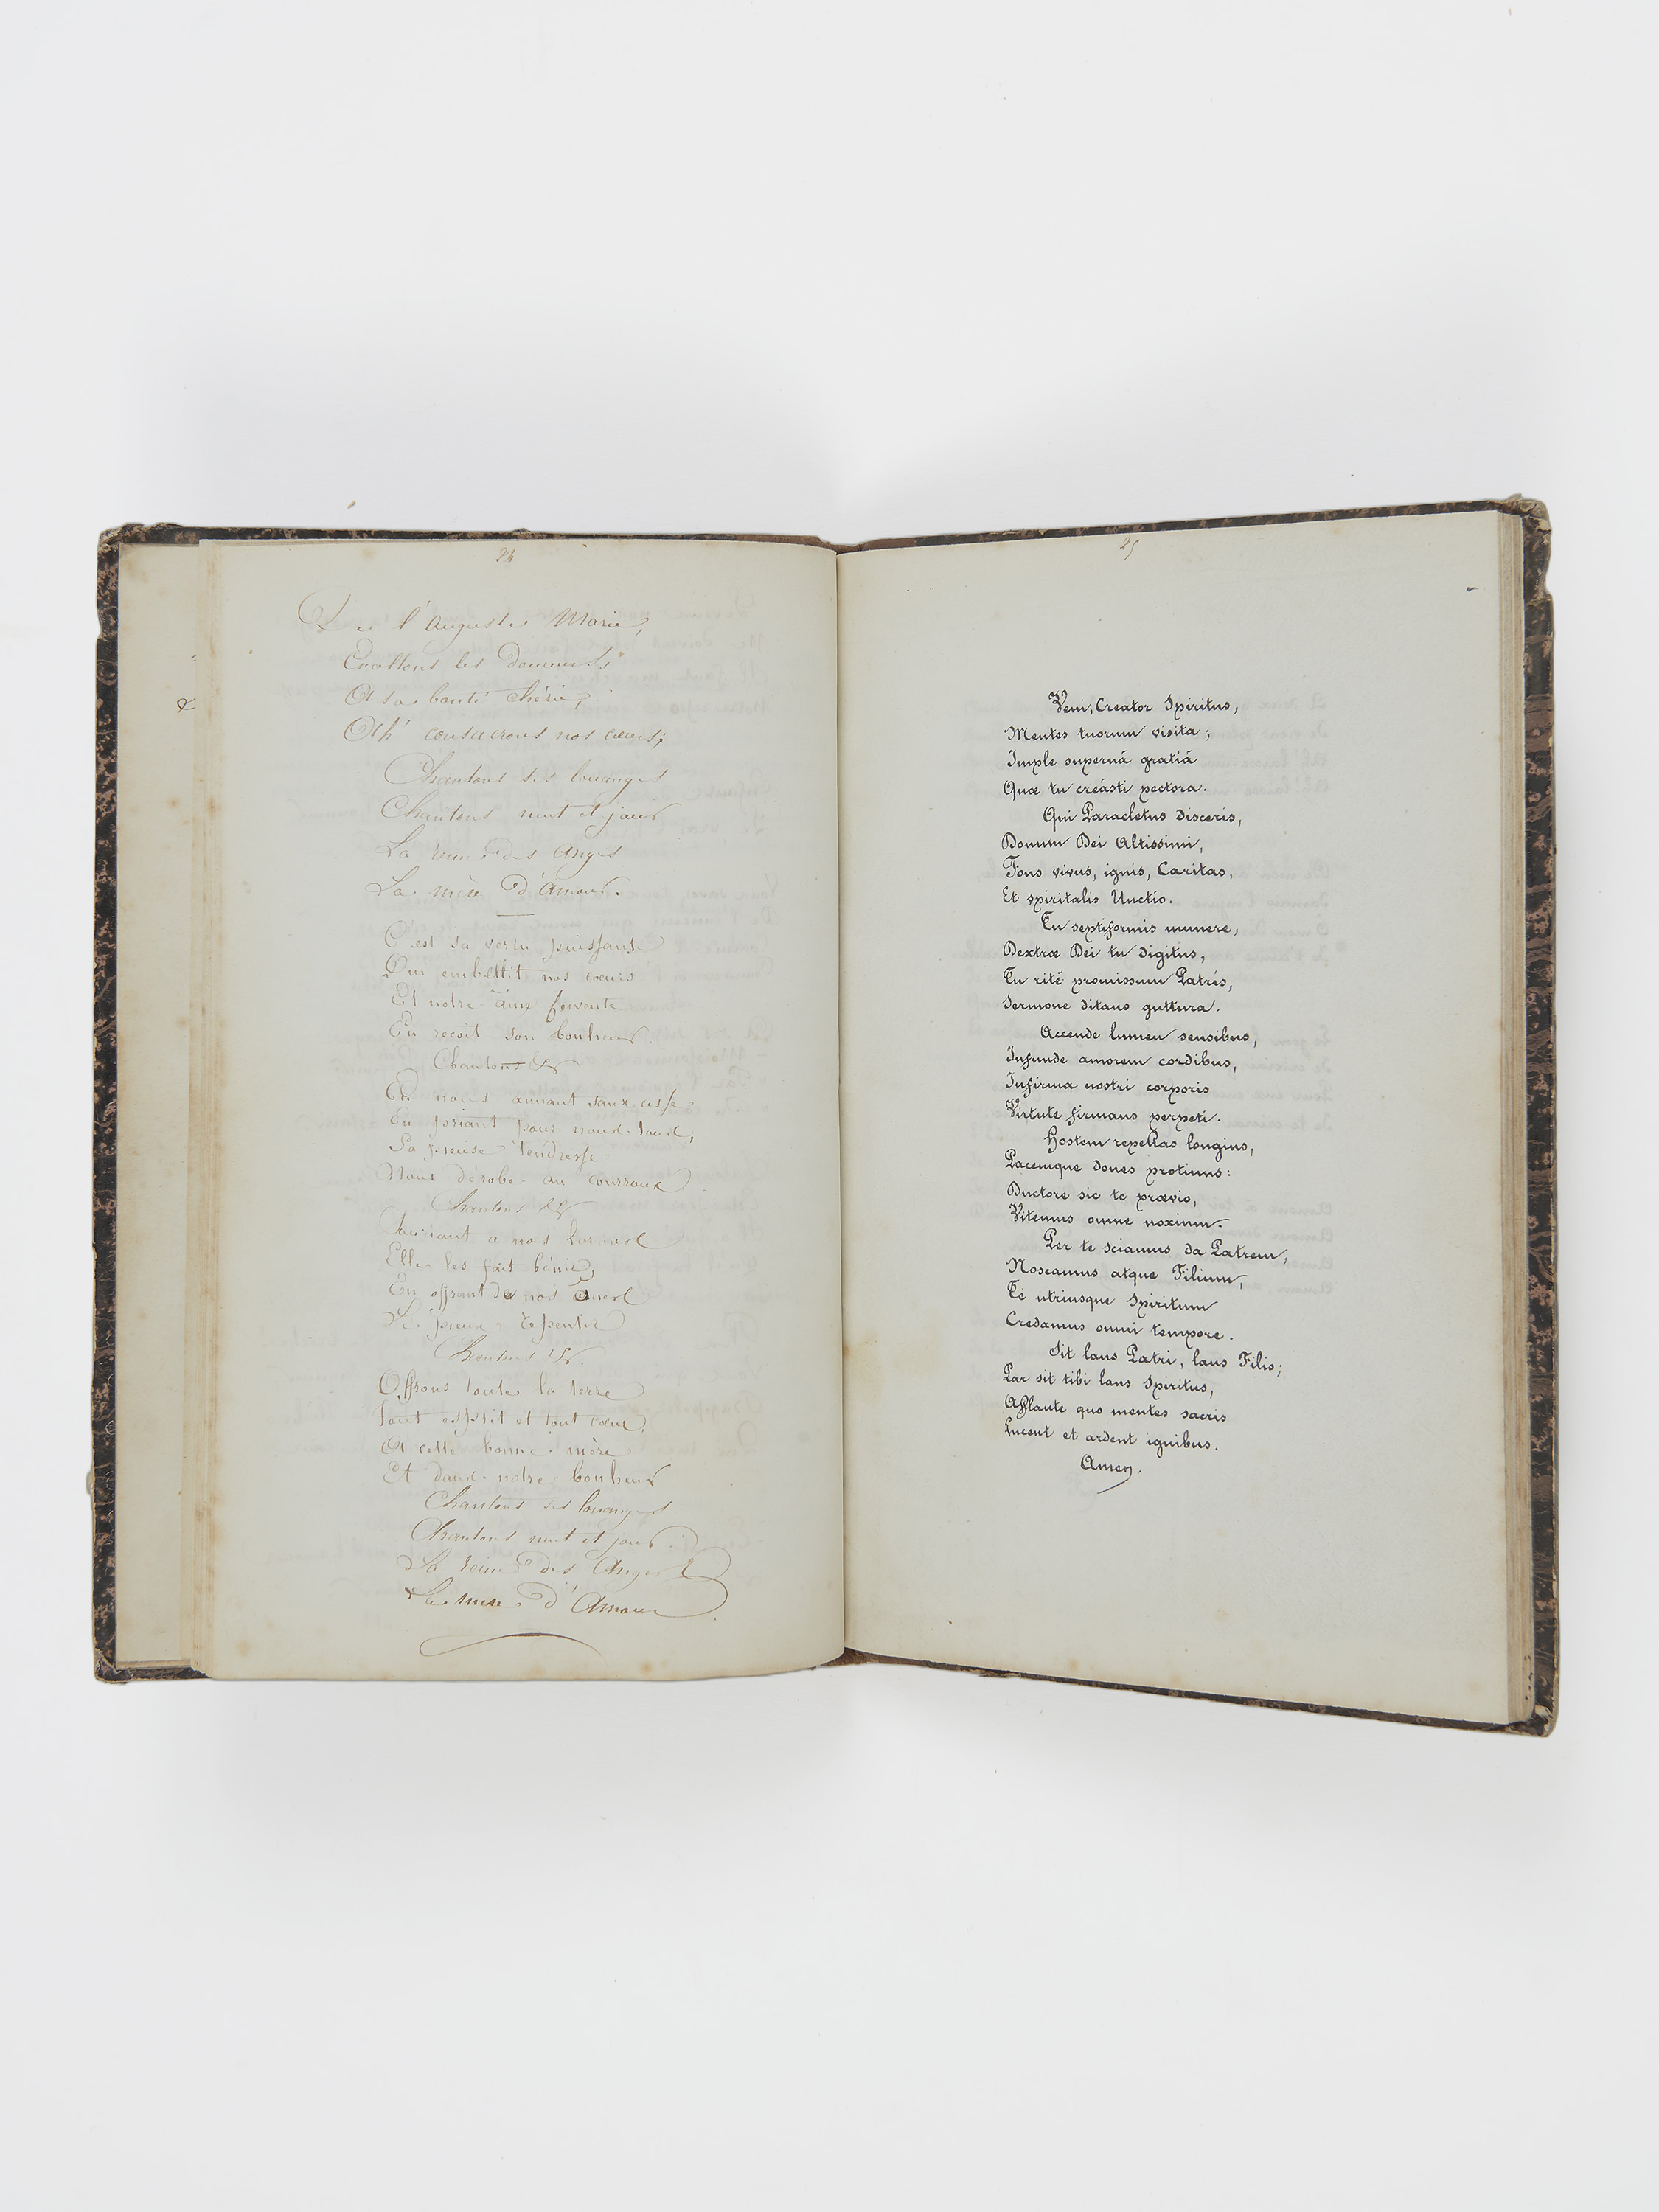 24
De l'auguste Marie,
Exaltons les
A sa bonté chérie,
consacrons nos cœurs;
Chantons ses louanges
Chantons nuit et jour
La reine des Anges
La mère d'Amour.
C'est sa vertu puissante
Qui embellit nos cœurs
Et notre âme fervente
En recoit son bonheur
Chantons &
En nous aimant sans cesse
En priant pour nous tous,
Sa pieuse tendresse
Nous dérobe au courroux
Chantons &
Souriant a nos larmes
Elle les fait bénir,
En offrant de nos
Le pieux repentir
Chantons &.
Offrons toute la terre
Tout esprit et tout cœur,
A cette bonne mère
Et dans notre bonheur
Chantons ses louanges
Chantons nuit et jour
La reine des Anges
La mère d'Amour
&
25
Veni, Creator Spiritus,
Mentes tuorum visita;
Imple supernâ gratiâ
Quæ tu creásti pectora.
Qui Paracletus diceris,
Donum Dei Altissimi,
Fons vivus, ignis, Caritas,
Et spiritalis Unctio.
Tu septiformis munere,
Dextræ Dei tu digitus,
Tu ritè promissum Patris,
Sermone ditans guttura.
Accende lumen sensibus,
Infunde amorem cordibus,
Infirma nostri corporis
Virtute firmans perpeti.
Hostem repellas longius,
Pacemque dones protinus:
Ductore sic te prævio,
Vitemus omne noxium.
Per te sciamus da Patrem,
Noscamus atque Filium,
Te utriusque Spiritum
Credamus omni tempore.
Sit laus Patri, laus Filio;
Par sit tibi laus Spiritus,
Afflante quo mentes sacris
Lucent et ardent ignibus.
Amen.